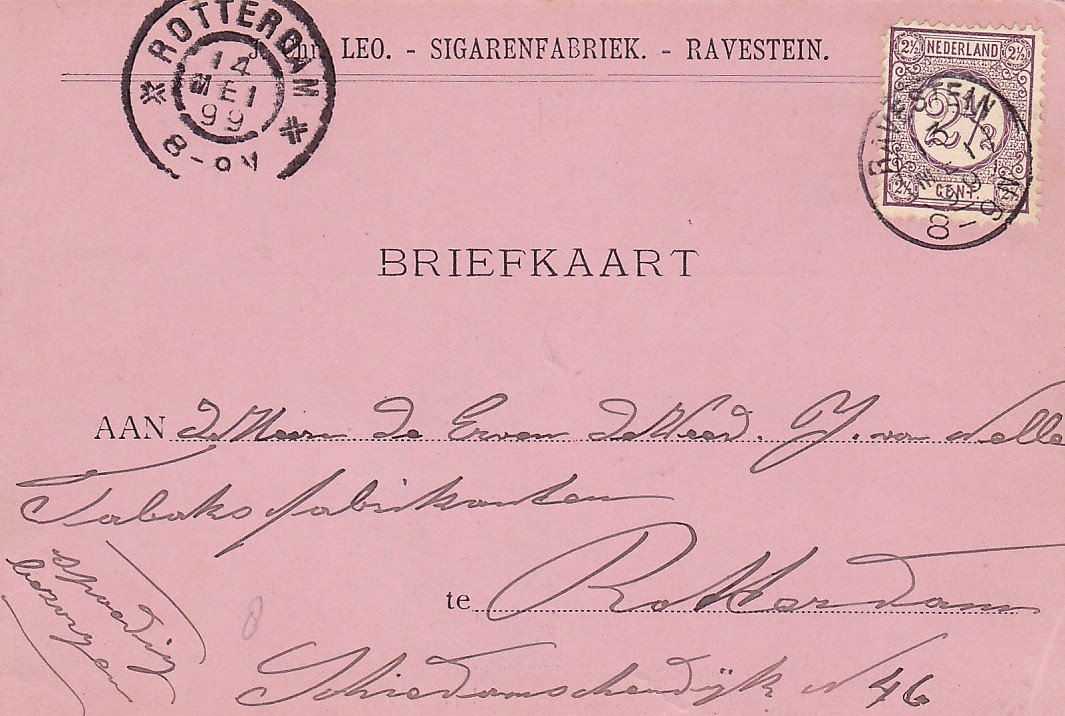 ROTTERDAM
14
MEI
99
8-9V
J. Chr. LEO. - SIGARENFABRIEK. - RAVESTEIN.
2½ NEDERLAND 2½
2½
2½ CENT. 2½
RAVESTEIN
MEI
8-9N
BRIEFKAART
AAN d'Heeren de Erven de Wed. J. van Nelle
Tabaksfabrikanten
te Rotterdam
Schiedamschendijk N 46
spoedig
bezorgen